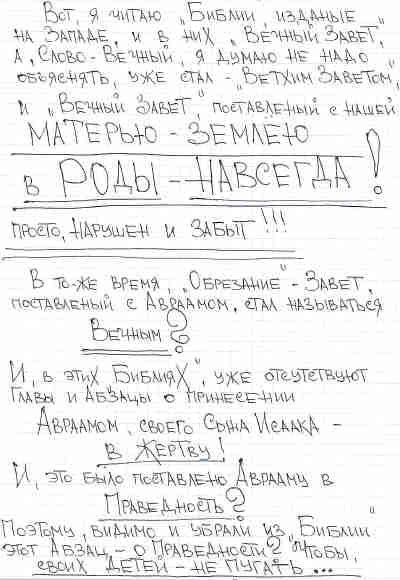 Вот, я читаю „Библии, изданые"
на Западе, и в них „Вечный Завет",
а, Слово - Вечный, я думаю не надо
объяснять, уже стал - „Ветхим Заветом",
и „Вечный Завет", поставленый с нашей
МАТЕРЬЮ - ЗЕМЛЁЮ
в РОДЫ - НАВСЕГДА!
просто, нарушен и забыт!!!
В то-же время, „Обрезание" - Завет,
поставленый с Авраамом, стал называться
Вечным?
И, в этих Библиях", уже отсутствуют
Главы и Абзацы о принесении
Авраамом, своего Сына Исаака -
в Жертву!
И, это было поставлено Аврааму в
Праведность?
Поэтому, видимо и убрали из „Библии"
этот Абзац, - о Праведности? Чтобы,
своих детей - не пугать...